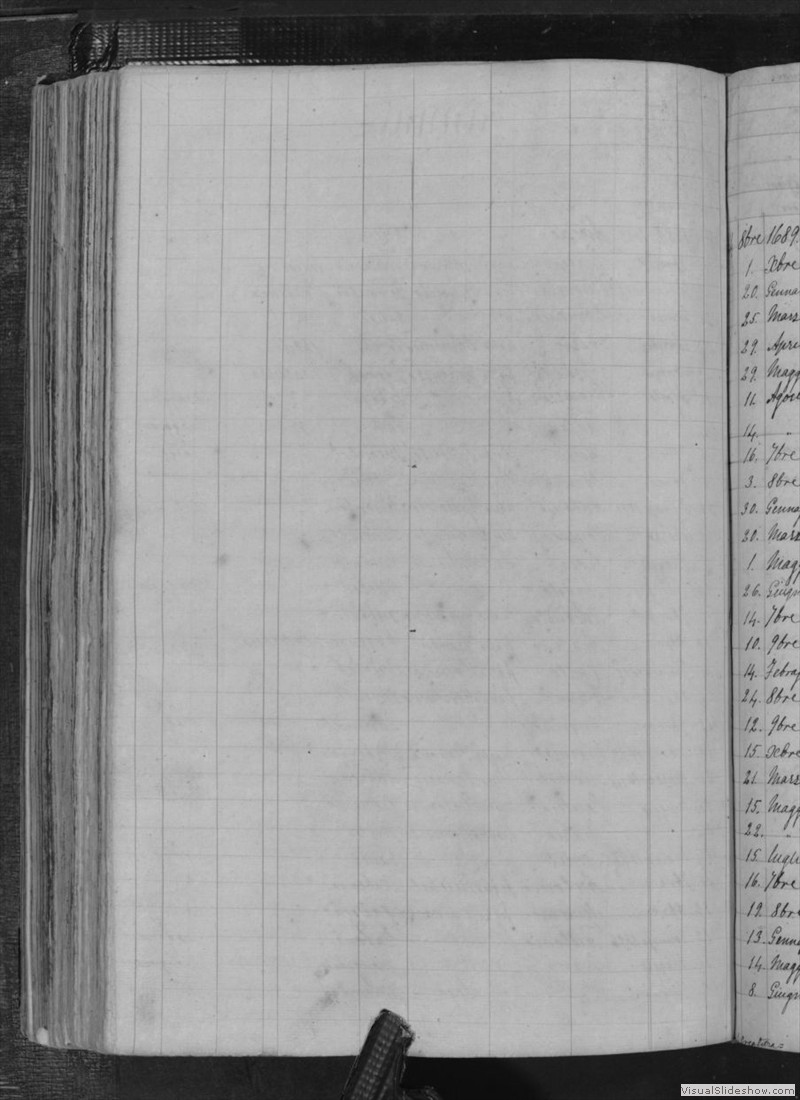 8bre 1689.
1. Xbre
20. Genna
25. Marz
29. Apri
29. Magg
11. Agos
14. "
16. 7bre
3. 8bre
30. Genna
30. Marz
1. Magg
26. Giugn
14. 7bre
10. 9bre
14. Febra
24. 8bre
12. 9bre
15. Xbre
21. Marz
15. Magg
22. "
15. Lugli
16. 7bre
19. 8bre
13. Genna
14. Magg
8. Giugn
VisualSlideshow.com